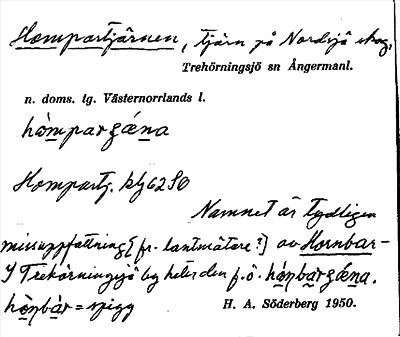 Hompartjärnen, tjärn på Nordsjö skog,
Trehörningsjö sn Ångermanl.
n. doms. tg. Västernorrlands l.
hòmparʒǽna
Hompartj. blg 62 SO
Namnet är tydligen
missuppfattning [fr. lantmätare?] av Hornbar-
I Trehörningsjö by heter den f.ö. hòṇbarʒǽna.
hòṇbàr = spigg
H. A. Söderberg 1950.